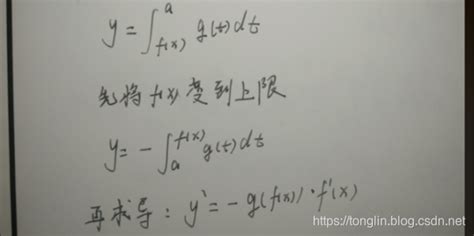 y=∫_{f(x)}^{a} g(t)dt
先将 f(x) 变到上限
y=-∫_{a}^{f(x)} g(t)dt
再求导: y'=-g(f(x))·f'(x)
https://tonglin.blog.csdn.net